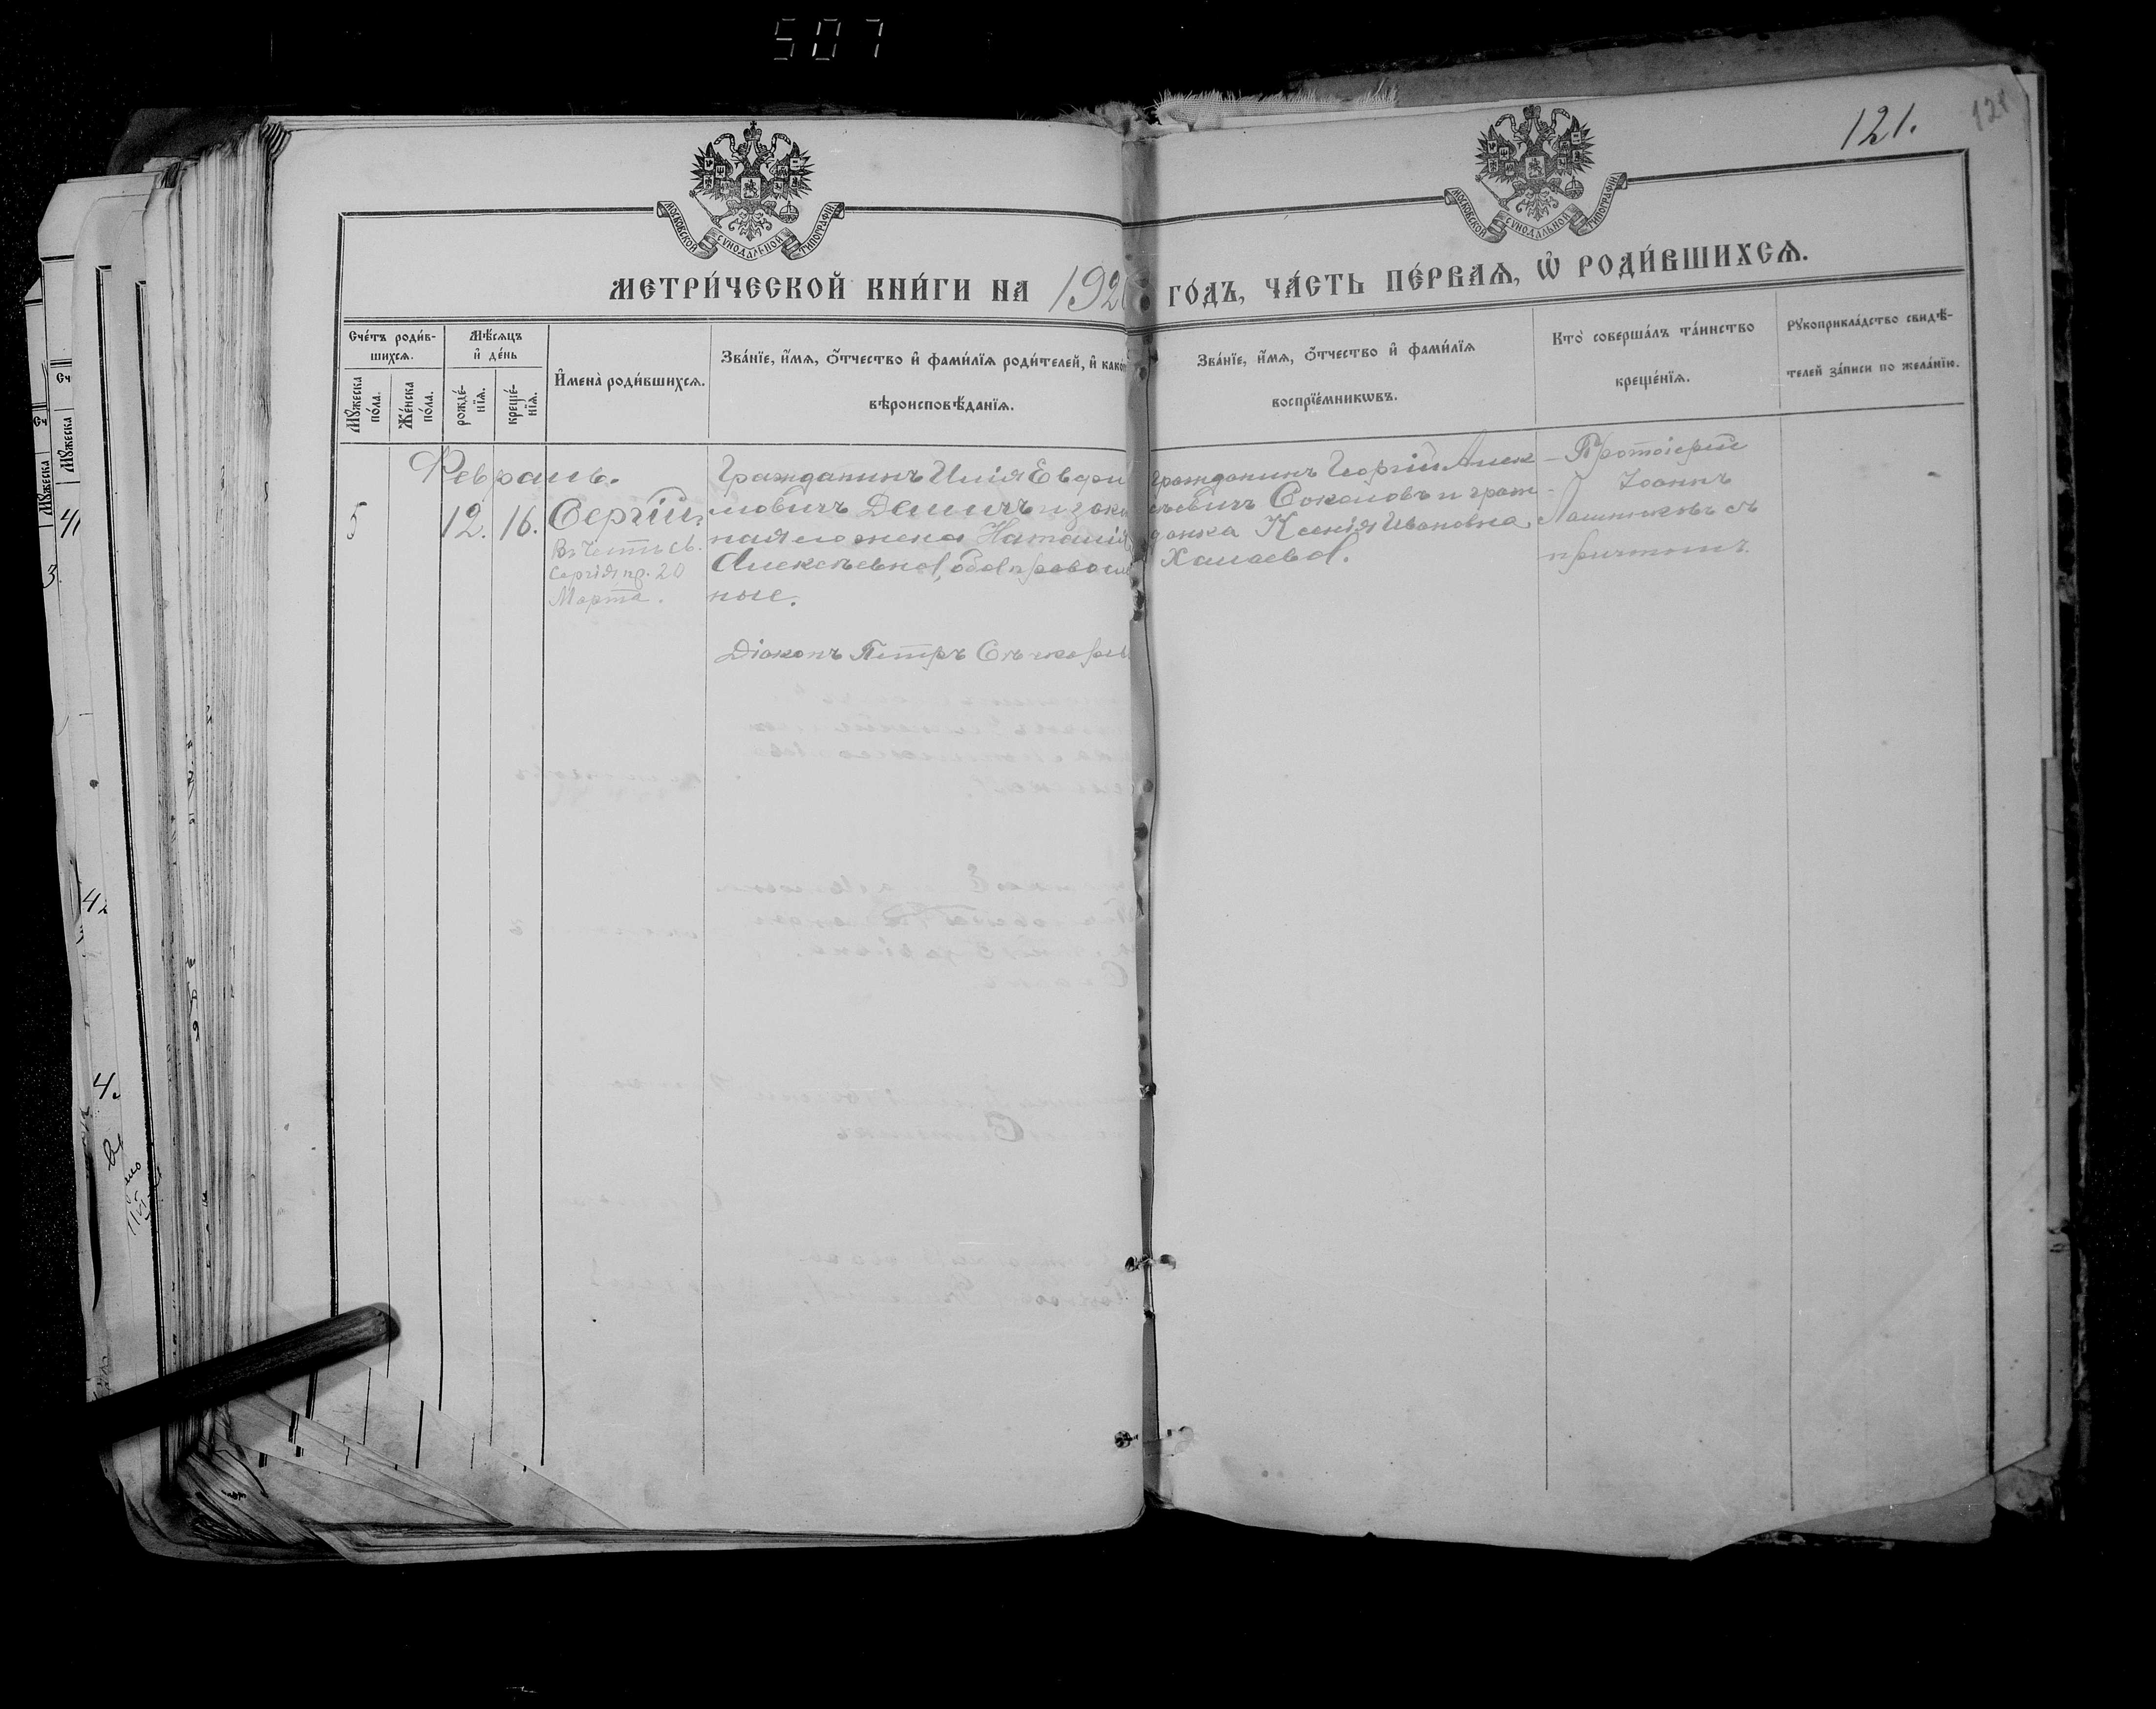 507
121.
121
МОСКОВСКОЙ СѴНОДАЛЬНОЙ ТИПОГРАФІИ
МОСКОВСКОЙ СѴНОДАЛЬНОЙ ТИПОГРАФІИ
МЕТРИ́ЧЕСКОЙ КНИ́ГИ НА 1920 ГО́ДЪ, ЧА́СТЬ ПЕ́РВАѦ, Ѡ҆ РОДИ́ВШИХСѦ.
Сче́тъ роди́в-
шихсѧ.
Мꙋжеска
по́ла.
Же́нска
по́ла.
Мѣ́сѧцъ
и҆ де́нь
рожде́-
нїѧ.
креще́-
нїѧ.
И҆мена̀ роди́вшихсѧ.
Зва́нїе, и҆́мѧ, ѻ҆́тчество и҆ фами́лїѧ роди́телей, и҆ како́
вѣроисповѣ́данїѧ.
Зва́нїе, и҆́мѧ, ѻ҆́тчество и҆ фами́лїѧ
воспрїе́мникѡвъ.
Кто̀ соверша́лъ та́инство
креще́нїѧ.
Рꙋкоприкла́дство свидѣ́-
телей за́писи по жела́нїю.
Февраль.
5
12. 16.
Сергій
Въ честь св.
Сергія, пр. 20
Марта.
Гражданинъ Илія Евфи
мовичъ Деминъ и зако
ная его жена Наталія
Алексѣевна, оба правосла
ные.
Діаконъ Петръ
Гражданинъ Георгій Алек
сѣевичъ Соколовъ и граж-
данка Ксенія Ивановна
Протоіерей
Іоаннъ
съ
причтомъ.